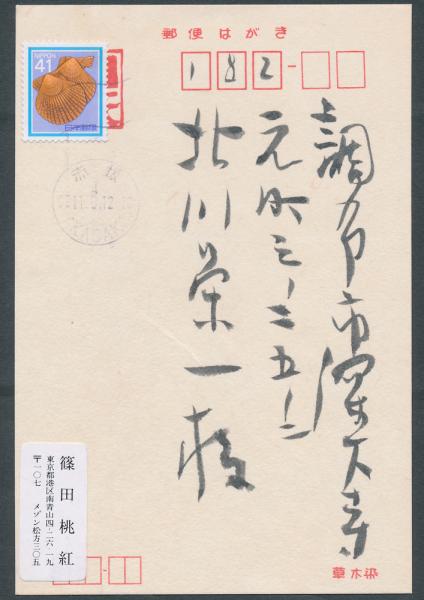 郵便はがき
NIPPON
41
日本郵便
182-
調布市深大寺
元町三ノ二五ノ二
北川栄一様
赤坂
AKASAKA
篠田桃紅
東京都港区南青山四-二六-一九
〒一〇七 メゾン松方三〇五
草木染